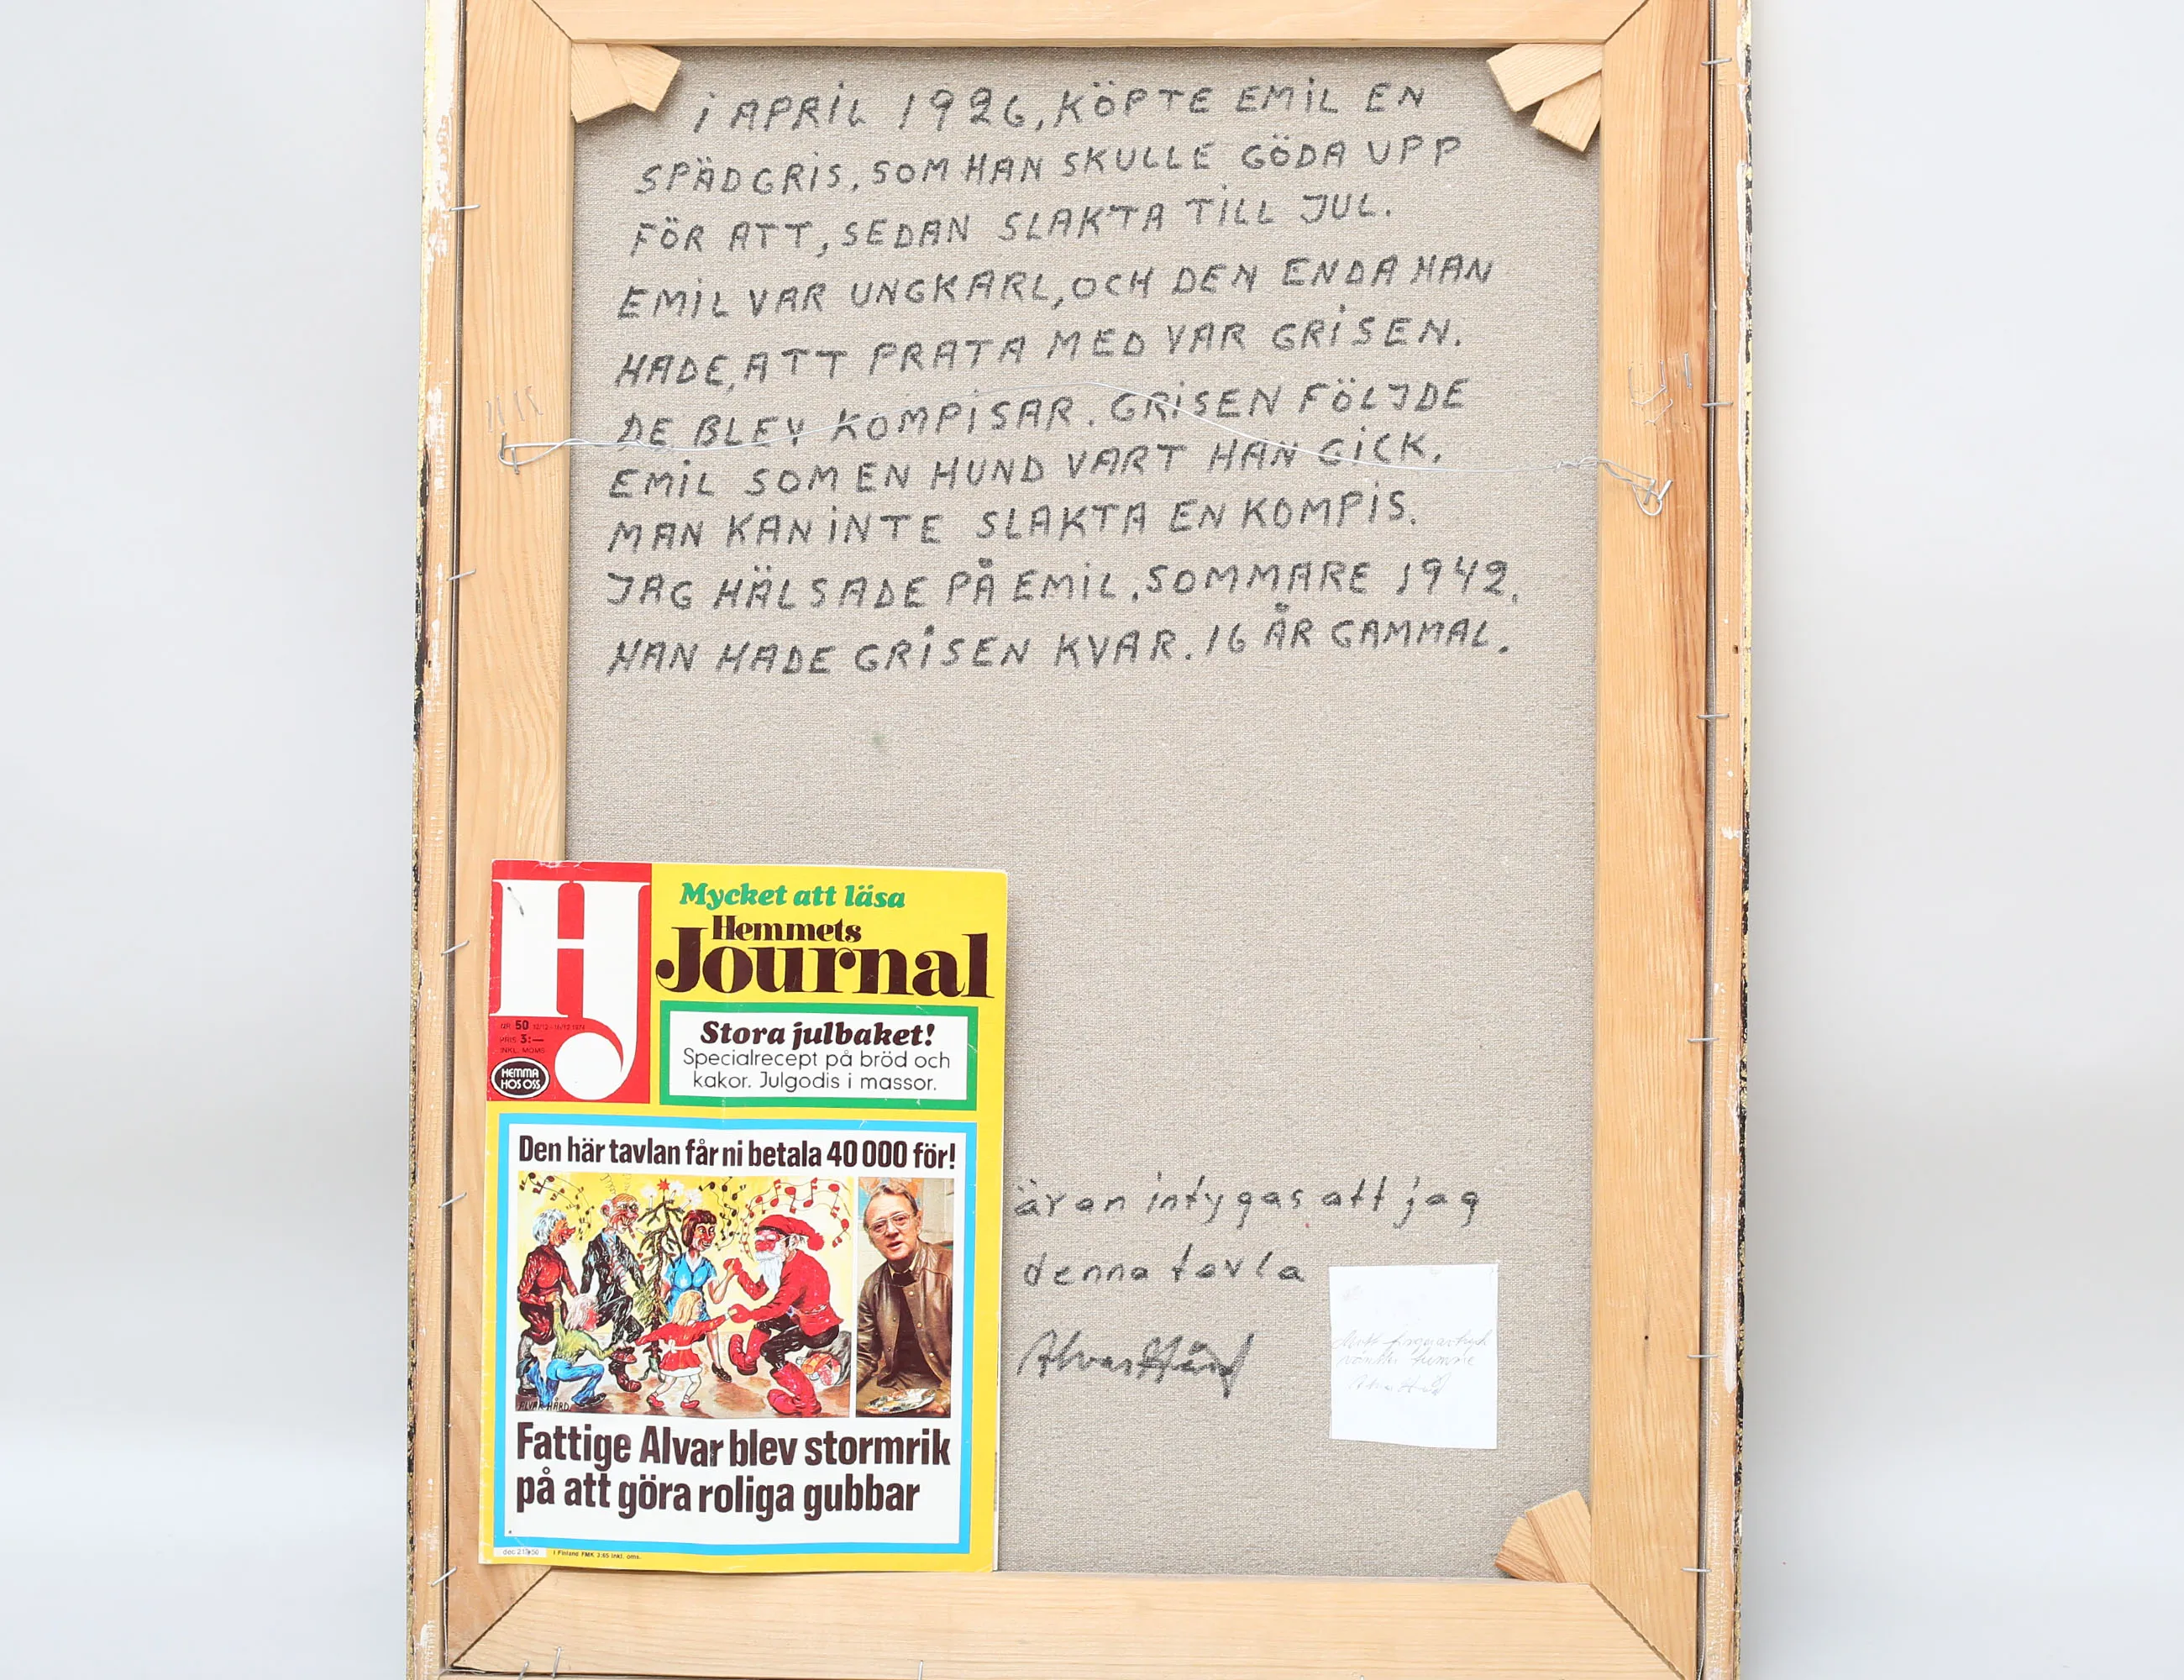 i APRiL 1926, KÖPTE EMiL EN
SPÄDGRiS. SOM HAN SKULLE GÖDA UPP
FÖR ATT, SEDAN SLAKTA TiLL JUL.
EMiL VAR UNGKARL, OCH DEN ENDA HAN
HADE, ATT PRATA MED VAR GRiSEN.
DE BLEV KOMPiSAR. GRiSEN FÖLJDE
EMiL SOM EN HUND VART HAN GiCK.
MAN KAN iNTE SLAKTA EN KOMPiS.
JAG HÄLSADE PÅ EMiL. SOMMARE 1942.
HAN HADE GRiSEN KVAR. 16 ÅR GAMMAL.
HJ
Mycket att läsa
Hemmets
Journal
NR 50 12/12-18/12 1974
PRIS 3:—
INKL. MOMS
HEMMA
HOS OSS
Stora julbaket!
Specialrecept på bröd och
kakor. Julgodis i massor.
Den här tavlan får ni betala 40 000 för!
ALVAR HÅRD
Fattige Alvar blev stormrik
på att göra roliga gubbar
I Finland FMK 3,65 inkl. oms.
äran intygas att jag
denna tavla
Alvar Hård
fingeravtryck
tumme